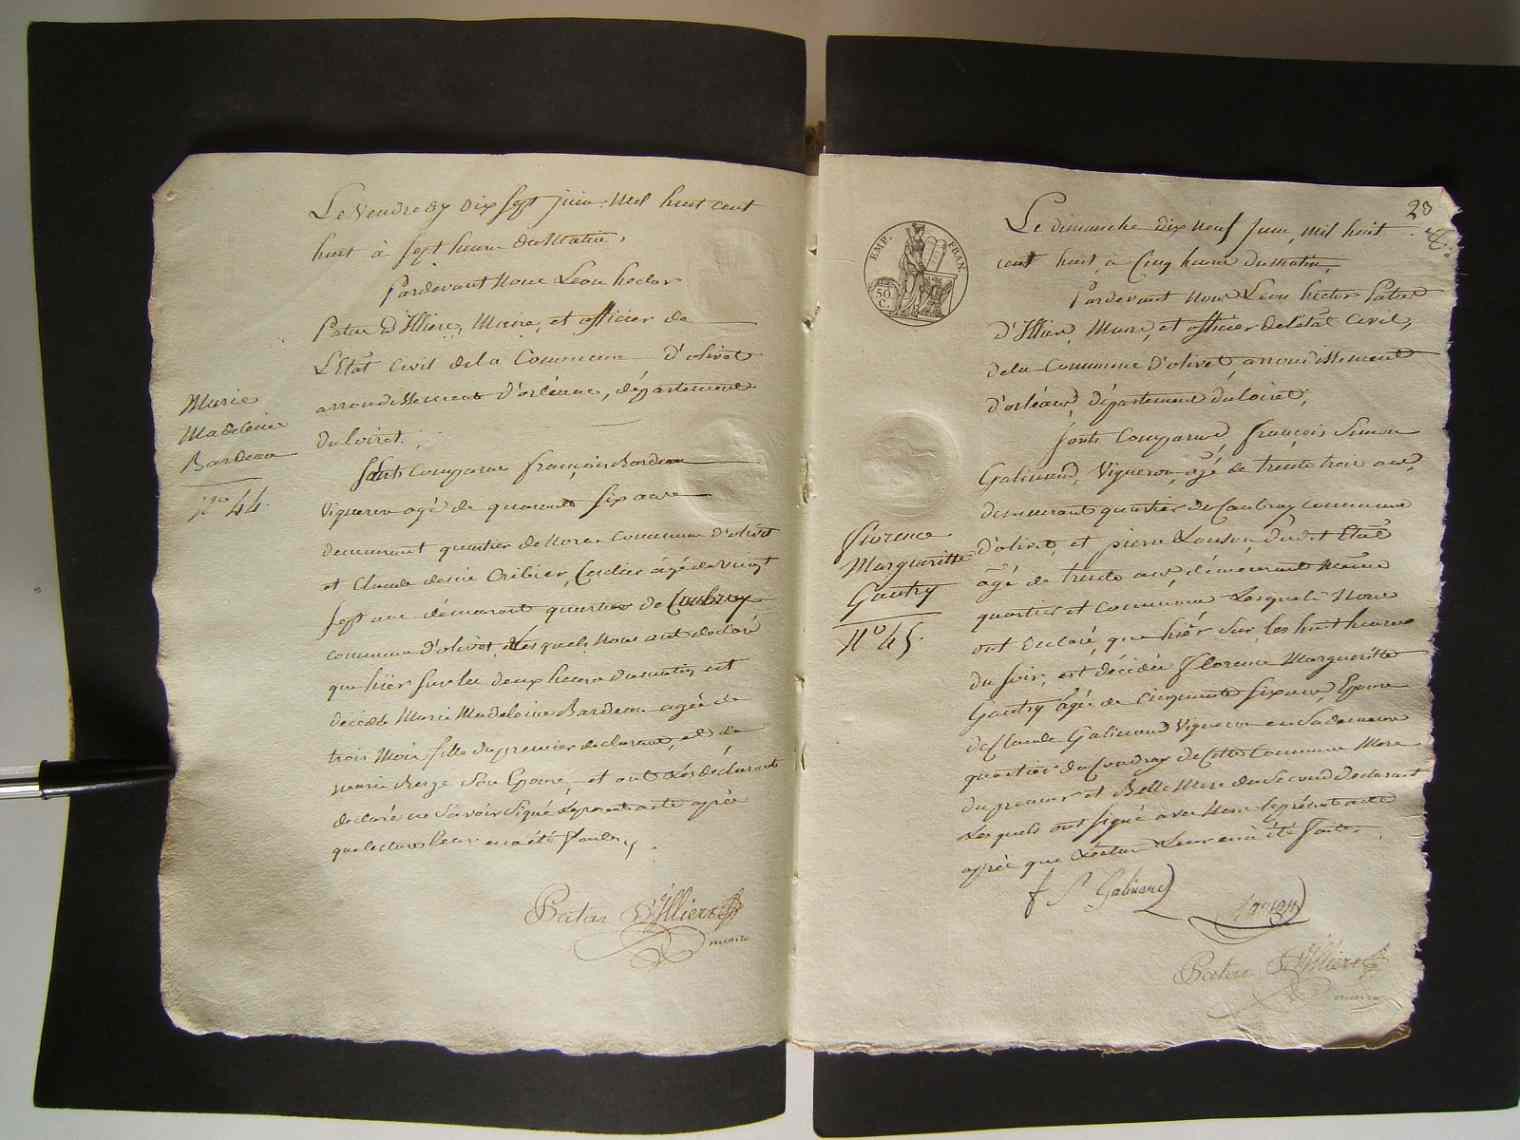 Le Vendredy dix Sept juin Mil huit cent
huit à Sept heure du Matin,
Pardevant Nous Léon hector
Patas d'Illiers, Maire, et officier de
L'Etat Civil de la Commune d'olivet
arrondissement d'orléans, département
du loiret.
Sont Comparus françois Bardeau
Vigneron agé de quarante Six ans
demeurant quartier de Commune d'olivet
et Claude Cribier, agé de vingt
Sept ans démurant quartier de Couldray
commune d'olivet, Lesquels Nous ont declaré
que hier Sur les deux heures du matin, est
décédé Marie Madeleine Bardeau agée de
trois Mois fille du premier declarant, et de
marie Son Epouse, et ont Les déclarant
declaré ne Savoir Signé Le present acte après
que lecture Leur en a été faite
Marie
Madeleine
Bardeau
N° 44.
Patas D'Illiers
maire
23
EMP. FRAN.
50 C.
Le dimanche dix Neuf Juin, mil huit
cent huit, à Cinq heure du matin,
Pardevant Nous Léon hector Patas
d'Illiers, Maire, et officier de l'état Civil,
de la Commune d'olivet, arrondissement
d'orléans, département du loiret,
Sont Comparus, françois Simon
Galimand, Vigneron, agé de trente trois ans,
demeurant quartier du Coudray commune
d'olivet, et pierre dudit Etat
âgé de trente ans, démeurant même
quartier et commune Lesquels Nous
ont declaré, que hièr Sur les huit heures
du Soir, est décédée florence Margueritte
Gautry agée de Cinquante Six ans, Epouse
de Claude Galimand Vigneron en Sa demeure
quartier du Coudray de Cette Commune Mere
du premier et Belle Mere du Second Declarant
Lesquels ont Signé avec Nous le présent acte
après que Lecture Leur en à été faite.
florence
Margueritte
Gautry
N° 45.
f S Galimand
Patas D'Illiers
maire